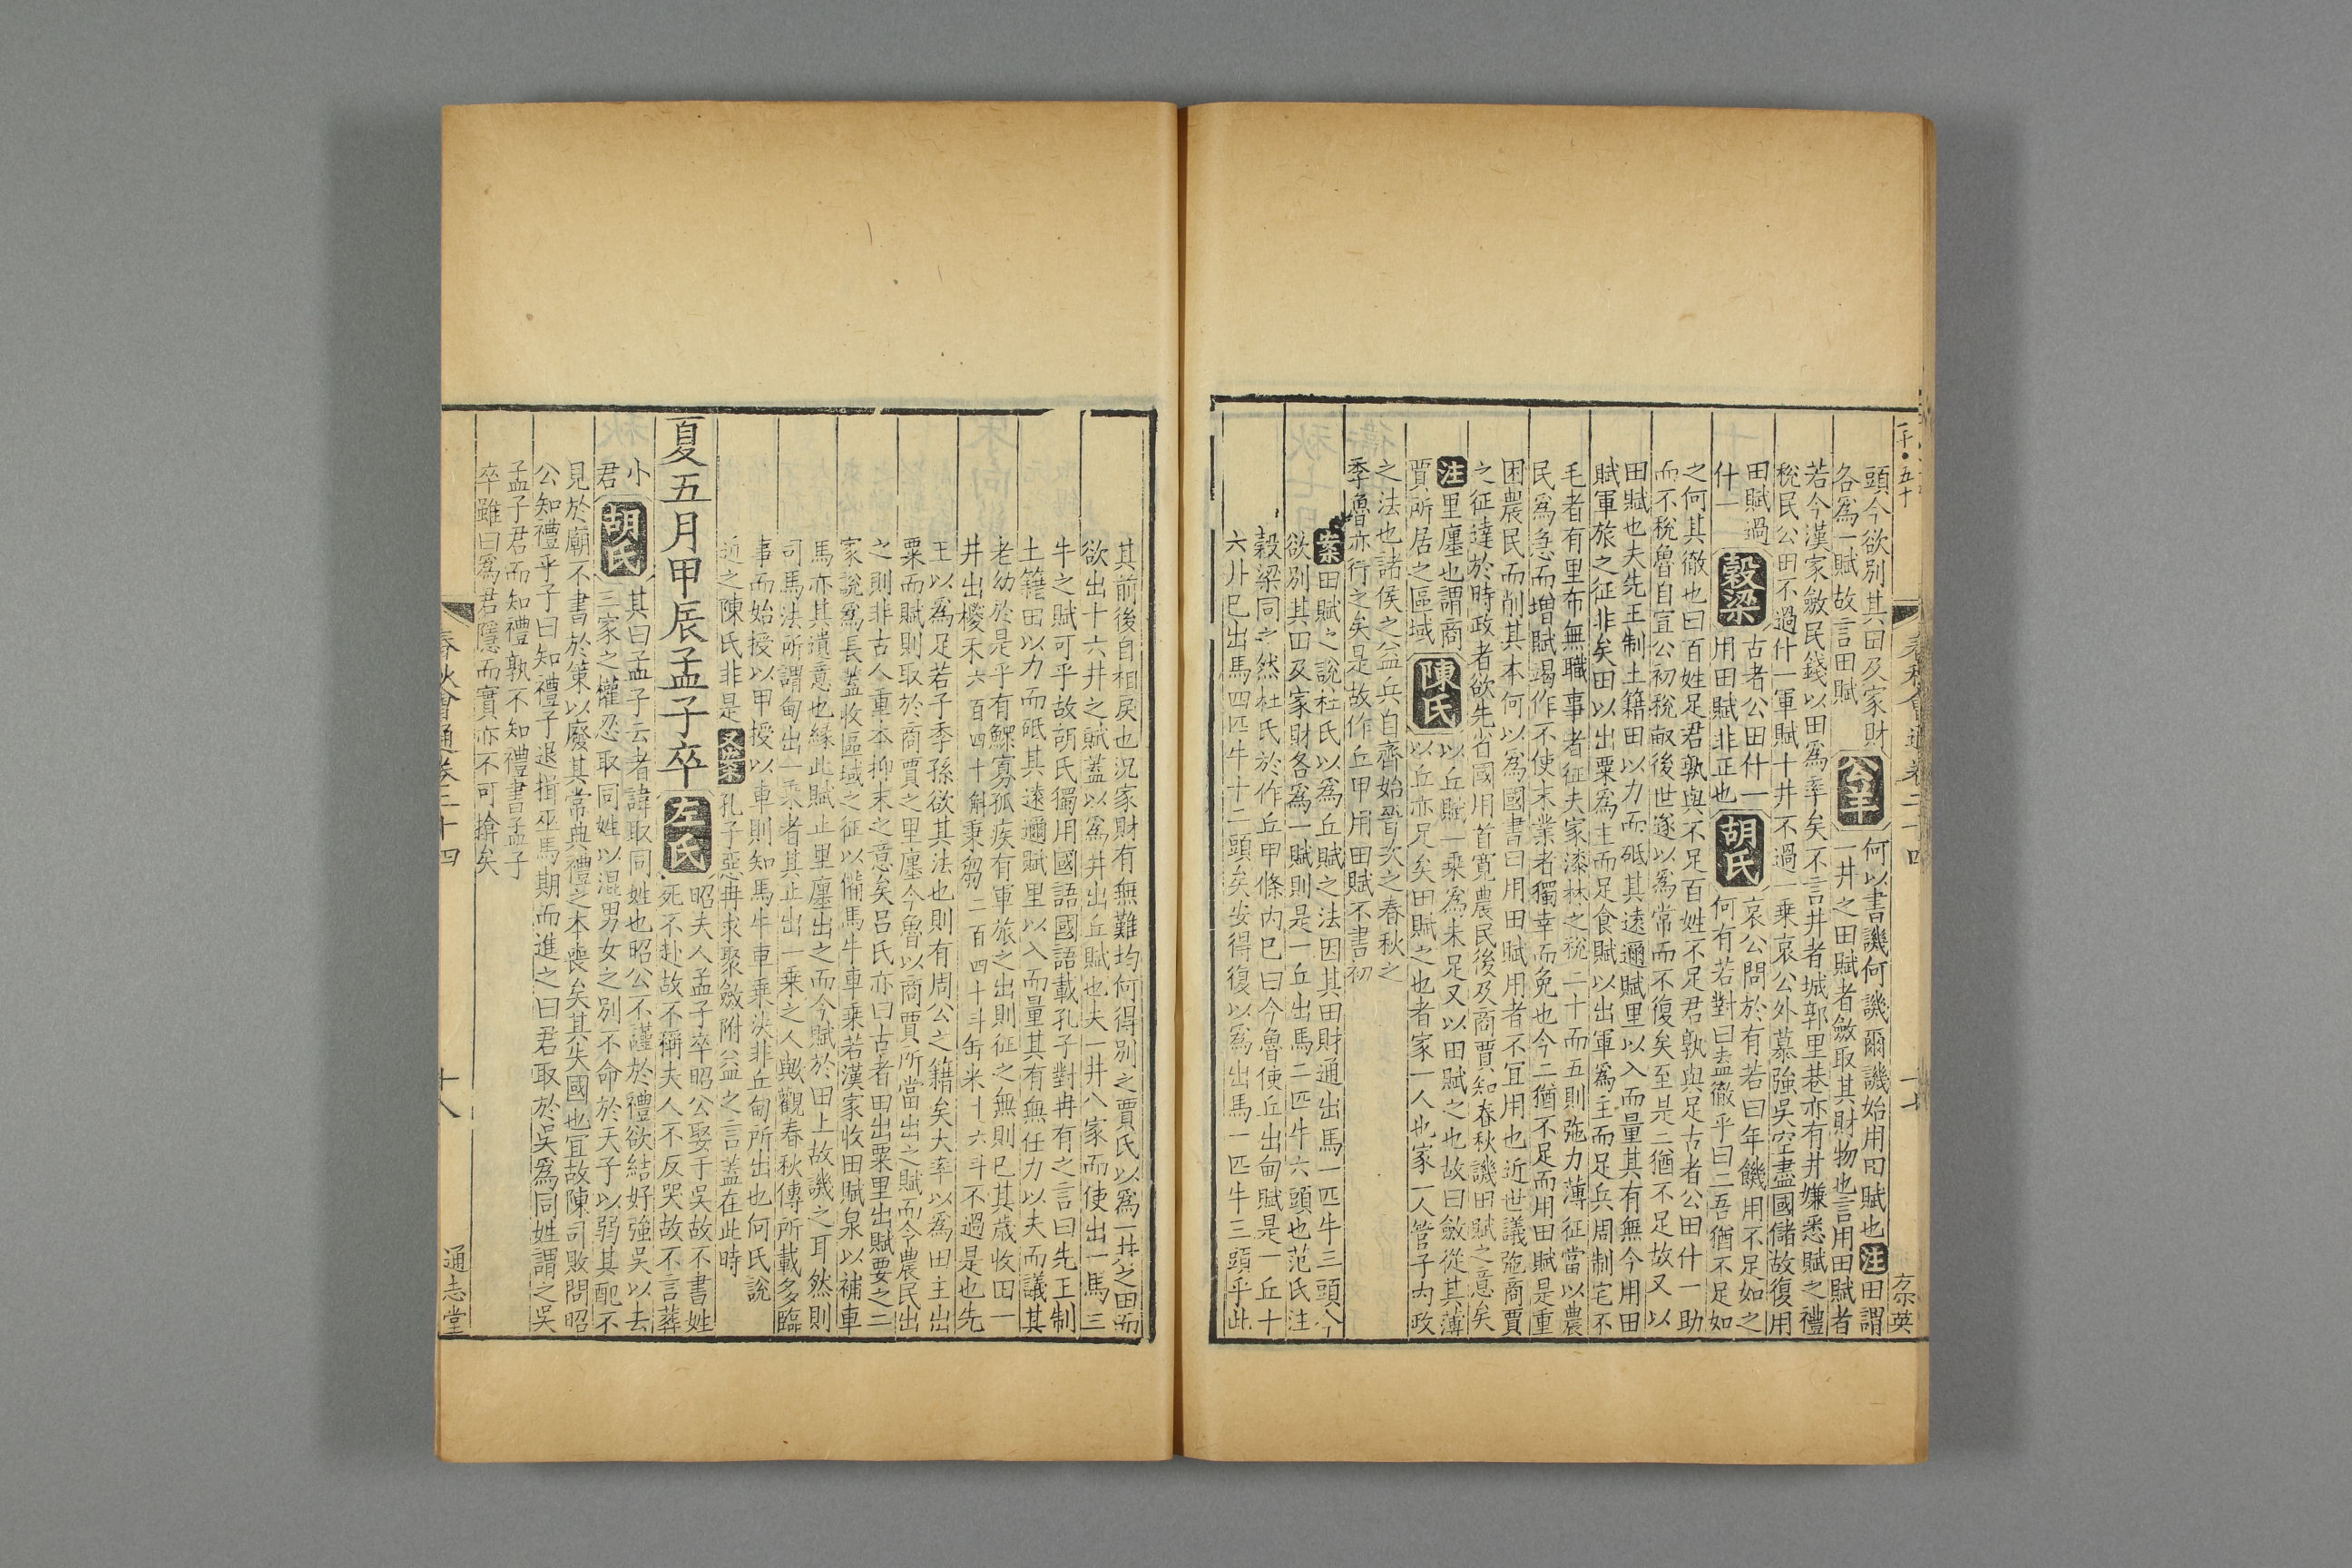 頭今欲別其田及家財
各爲一賦故言田賦
公羊
何以書譏何譏爾譏始用田賦也注田謂
一井之田賦者斂取其財物也言用田賦者
若今漢家斂民錢以田爲率矣不言井者城郭里巷亦有井嫌悉賦之禮
稅民公田不過什一軍賦十井不過一乘哀公外慕強吳空盡國儲故復用
田賦過
什一
穀梁
古者公田什一
用田賦非正也
胡氏
哀公問於有若曰年饑用不足如之
何有若對曰盍徹乎曰二吾猶不足如
之何其徹也曰百姓足君孰與不足百姓不足君孰與足古者公田什一助
而不稅魯自宣公初稅畝後世遂以爲常而不復矣至是二猶不足故又以
田賦也夫先王制土籍田以力而砥其遠邇賦里以入而量其有無今用田
賦軍旅之征非矣田以出粟爲主而足食賦以出軍爲主而足兵周制宅不
毛者有里布無職事者征夫家漆林之稅二十而五則弛力薄征當以農
民爲急而增賦竭作不使末業者獨幸而免也今二猶不足而用田賦是重
困農民而削其本何以爲國書曰用田賦用者不宜用也近世議弛商賈
之征達於時政者欲先省國用首寬農民後及商賈知春秋譏田賦之意矣
注里廛也謂商
賈所居之區域
陳氏
以丘賦一乘爲未足又以田賦之也故曰斂從其薄
以丘亦足矣田賦之也者家一人也家一人管子內政
之法也諸侯之益兵自齊始晉次之春秋之
季魯亦行之矣是故作丘甲用田賦不書初
案田賦之說杜氏以爲丘賦之法因其田財通出馬一匹牛三頭今
欲別其田及家財各爲一賦則是一丘出馬二匹牛六頭也范氏注
穀梁同之然杜氏於作丘甲條內已曰今魯使丘出甸賦是一丘十
六井已出馬四匹牛十二頭矣安得復以爲出馬一匹牛三頭乎此
其前後自相戾也況家財有無難均何得別之賈氏以爲一井之田而
欲出十六井之賦蓋以爲井出丘賦也夫一井八家而使出一馬三
牛之賦可乎故胡氏獨用國語國語載孔子對冉有之言曰先王制
土籍田以力而砥其遠邇賦里以入而量其有無任力以夫而議其
老幼於是乎有鰥寡孤疾有軍旅之出則征之無則已其歲收田一
井出稷禾六百四十斛秉芻二百四十斗缶米十六斗不過是也先
王以爲足若子季孫欲其法也則有周公之籍矣大率以爲田主出
粟而賦則取於商賈之里廛今魯以商賈所當出之賦而令農民出
之則非古人重本抑末之意矣呂氏亦曰古者田出粟里出賦要之二
家說爲長蓋收區域之征以備馬牛車乘若漢家收田賦泉以補車
馬亦其遺意也緣此賦止里廛出之而今賦於田上故譏之耳然則
司馬法所謂甸出一乘者其止出一乘之人歟觀春秋傳所載多臨
事而始授以甲授以車則知馬牛車乘決非丘甸所出也何氏說
近之陳氏非是又案孔子惡冉求聚斂附益之言蓋在此時
夏五月甲辰孟子卒
左氏
昭夫人孟子卒昭公娶于吳故不書姓
死不赴故不稱夫人不反哭故不言葬
小
君
胡氏
其曰孟子云者諱取同姓也昭公不謹於禮欲結好強吳以去
三家之權忍取同姓以混男女之別不命於天子以弱其配不
見於廟不書於策以廢其常典禮之本喪矣其失國也宜故陳司敗問昭
公知禮乎子曰知禮子退揖巫馬期而進之曰君取於吳爲同姓謂之吳
孟子君而知禮孰不知禮書孟子
卒雖曰爲君隱而實亦不可揜矣
春秋會通卷二十四
十八
通志堂